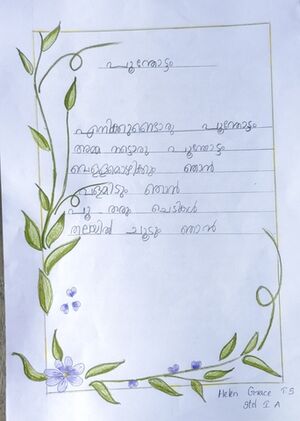 പൂന്തോട്ടം
എനിക്കുണ്ടൊരു പൂന്തോട്ടം
അമ്മ നട്ടൊരു പൂന്തോട്ടം
വെള്ളമൊഴിക്കും ഞാൻ
വളമിടും ഞാൻ
പൂ തരും ചെടികൾ
തലയിൽ ചൂടും ഞാൻ
Helen Grace T S
Std I A